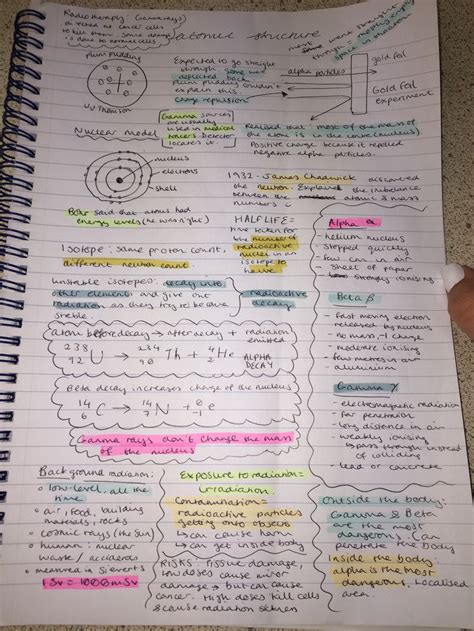 Radiotherapy: Gamma rays
directed at cancer cells
to kill them. Some damage
is done to normal cells
atomic structure
most went straight
through meaning empty
space in atom
plum pudding
JJ Thomson
Expected to go straight
through. Some were
deflected back
plum pudding couldn't
explain this:
charge repulsion
alpha particles
gold foil
Gold foil
experiment
Gamma sources
are usually
used in medical
tracers. Detector
locates it.
Nuclear model
Realised that: most of the mass of
the atom is in the centre (nucleus)
Positive charge because it repelled
alpha particles.
nucleus
electrons
shell
1932 - James Chadwick discovered
the neutron. Explained the imbalance
between the atomic & mass
numbers
Bohr said that atoms had
energy levels (he was right)
HALF LIFE =
time taken for
the number of
radioactive
nuclei in an
isotope to
halve
Isotope: same proton count,
different neutron count.
Unstable isotopes: decay into
other elements and give out
radiation as they try to become
stable.
radioactive
decay
atom before decay → after decay + radiation
emitted
238 92 U → 234 90 Th + 4 2 He ALPHA
DECAY
Beta decay increases charge of the nucleus
14 6 C → 14 7 N + 0 -1 e
Gamma rays don't change the mass
of the nucleus
Alpha α
- helium nucleus
- stopped quickly
- few cm in air
- sheet of paper
- strongly ionising
Beta β
- fast moving electron
- released by nucleus
- no mass, -1 charge
- moderate ionising
- few metres in air
- aluminium
Gamma γ
- electromagnetic radiation
- far penetration
- long distance in air
- weakly ionising
pass through instead
of colliding
- lead or concrete
Background radiation:
• low-level, all the
time
• air, food, building
materials, rocks
• cosmic rays (the sun)
• human: nuclear
waste / accidents
• measured in Sieverts
1Sv = 1000mSv
Exposure to radiation =
irradiation.
Contamination =
radioactive particles
getting onto objects
↳ can cause harm
↳ can get inside body
RISKS: Tissue damage,
low doses cause minor
damage → but can cause
cancer. High doses kill cells
& cause radiation sickness
Outside the body:
Gamma & Beta
are the most
dangerous. Can
penetrate the body
Inside the body:
alpha is the most
dangerous. Localised
area.